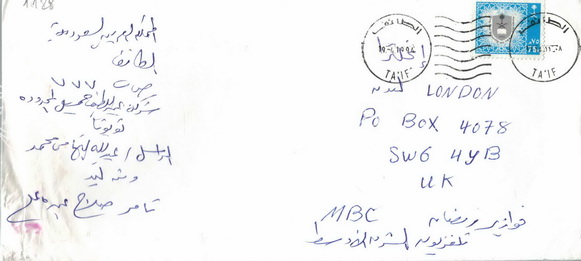 1128
المملكة العربية السعودية
الطائف
ص ب ٧٧٧
شركة عبد اللطيف جميل المحدودة
تويوتا
الراسل / عبد الله محمد
تامر صلاح
الطائف
TA'IF
75
الطائف
TA'IF
إنجلترا
لندن LONDON
PO BOX 4078
SW6 4YB
UK
MBC فوازير رمضان
تلفزيون الشرق الأوسط